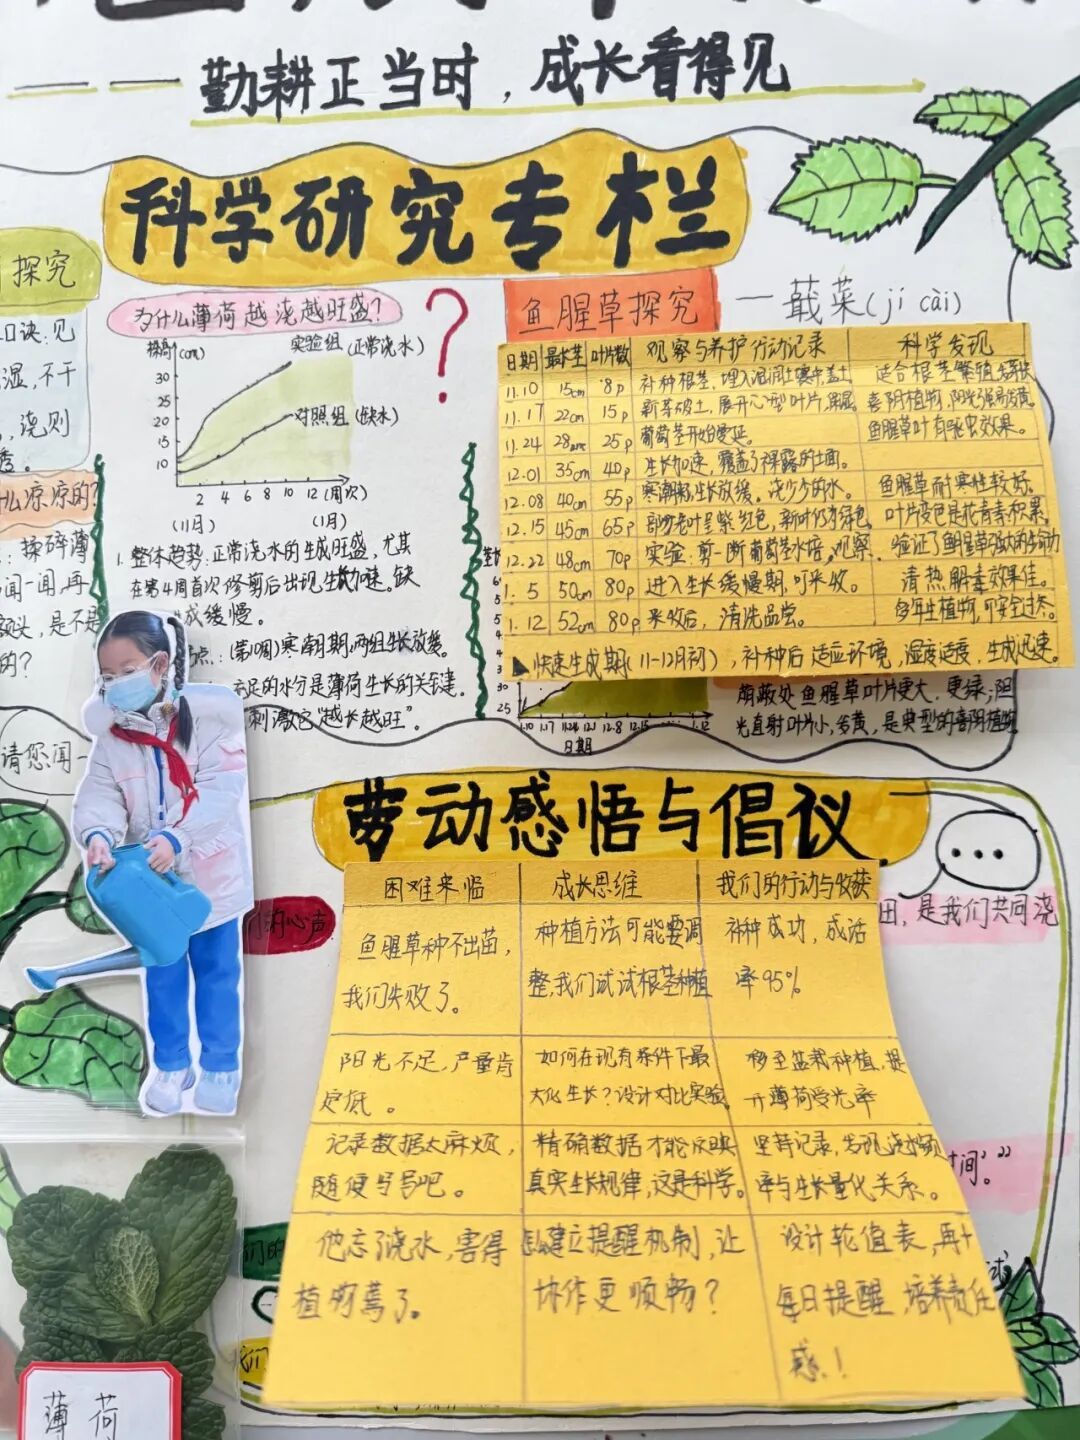 ——勤耕正当时，成长看得见
科学研究专栏
探究
口诀：见
湿，不干
，浇则
透。
什么凉凉的？
揉碎薄
闻一闻，再
额头，是不是
的？
请您闻一
为什么薄荷越浇越旺盛？
?
株高(cm)
30
25
20
15
10
实验组(正常浇水)
对照组(缺水)
2 4 6 8 10 12 (周次)
(11月) (1月)
1. 整体趋势：正常浇水的生成旺盛，尤其
在第4周首次修剪后出现生长加速。缺
成缓慢。
点：(第10周)寒潮期，两组生长放缓。
充足的水分是薄荷生长的关键。
刺激它“越长越旺”。
鱼腥草探究 —蕺菜(jí cài)
日期 最长茎 叶片数 观察与养护行动记录 科学发现
11.10 15cm 8p 补种根茎，埋入湿润土壤中，盖土 适合根茎繁殖
11.17 22cm 15p 新芽破土，展开心型叶片 喜阴植物
11.24 28cm 25p 葡萄茎开始蔓延。 鱼腥草叶有驱虫效果。
12.01 35cm 40p 生长加速，覆盖了裸露的土面。
12.08 40cm 55p 寒潮 生长放缓。浇少少的水。 鱼腥草耐寒性较好。
12.15 45cm 65p 部分老叶呈紫红色，新叶仍为绿色。 叶片变色是花青素积累。
12.22 48cm 70p 实验：剪一断葡萄茎水培，观察. 验证了鱼腥草强大的生命力
1.5 50cm 80p 进入生长缓慢期，可采收。 清热解毒效果佳。
1.12 52cm 80p 采收后，清洗品尝。 多年生植物，可安全过冬。
快速生成期(11-12月初)，补种后适应环境，湿度适度，生成迅速。
30
25
1.10 1.17 11.24 12.1 12.8 12.15
日期
荫蔽处鱼腥草叶片更大、更绿；阳
光直射叶片小，发黄，是典型的喜阴植物
劳动感悟与倡议
们的心声
田，是我们共同浇
时间’”
们的
我们
困难来临 成长思维 我们的行动与收获
鱼腥草种不出苗， 种植方法可能要调 补种成功，成活
我们失败了。 整，我们试试根茎种植 率95%
阳光不足，产量肯 如何在现有条件下最 移至盆栽种植，提
定低。 大化生长？设计对比实验. 升薄荷受光率
记录数据太麻烦， 精确数据才能反映 坚持记录，发现浇水频
随便写写吧。 真实生长规律，这是科学。 率与生长量化关系。
他忘了浇水，害得 怎么建立提醒机制，让 设计轮值表，再+
植物蔫了。 协作更顺畅？ 每日提醒，培养责任
感！
薄荷